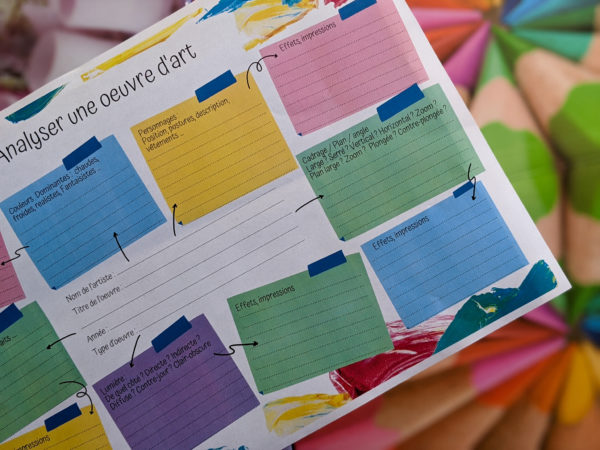 Analyser une oeuvre d'art
Effets, impressions
Personnages
Position, postures, description,
vêtements ...
Cadrage / Plan / angle
Large ? Serré ? Vertical ? Horizontal ? Zoom ?
Plan large ? Zoom ? Plongée ? Contre-plongée ?
Couleurs Dominantes : chaudes,
froides, réalistes, Fantaisistes ...
Effets, impressions
Nom de l'artiste :
Titre de l'oeuvre :
Année :
Type d'oeuvre :
Effets, impressions
Lumière
De quel côté ? Directe ? Indirecte ?
Diffuse ? Contre-jour ? Clair-obscure